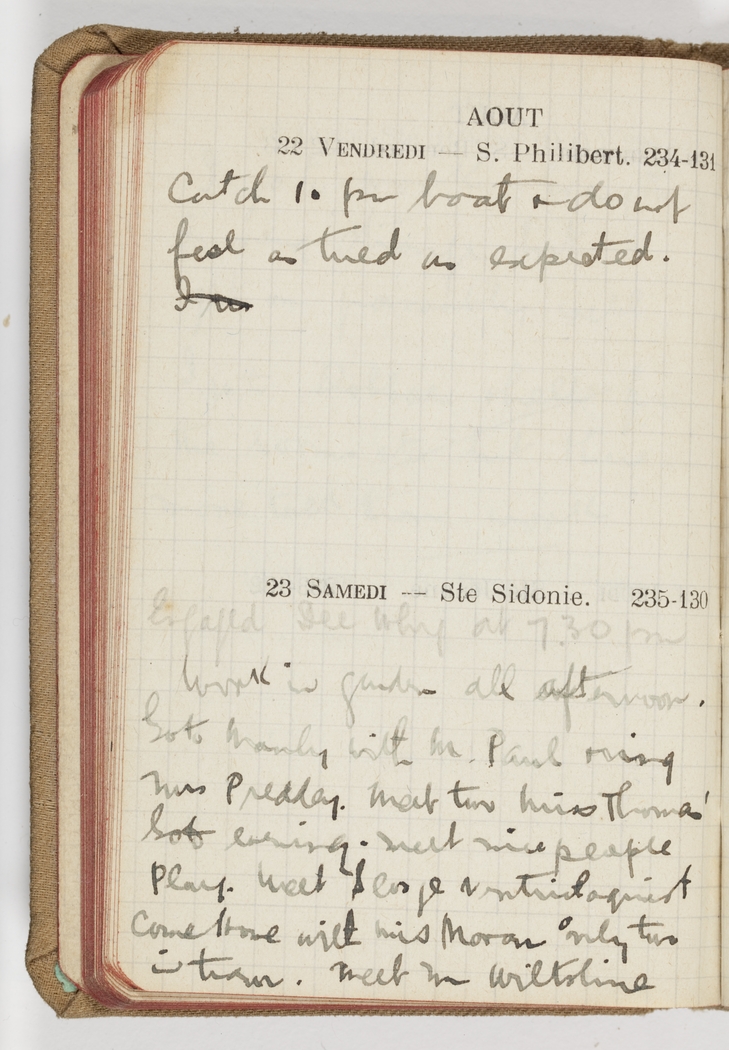 AOUT
22 VENDREDI — S. Philibert. 234-131
Catch 10 pm boat & do not
feel as tired as expected.
I
23 SAMEDI -- Ste Sidonie. 235-130
Engaged Dee Why at 7.30 pm
Work in garden all afternoon.
Go to Manly with Mr. Paul & ring
Mrs Predday. Meet two Miss Thomas'
Go to evening. meet nice people
Play. Meet ventriloquist
Come Home with Miss Moran only two
in tram. Meet Mr Wiltshire